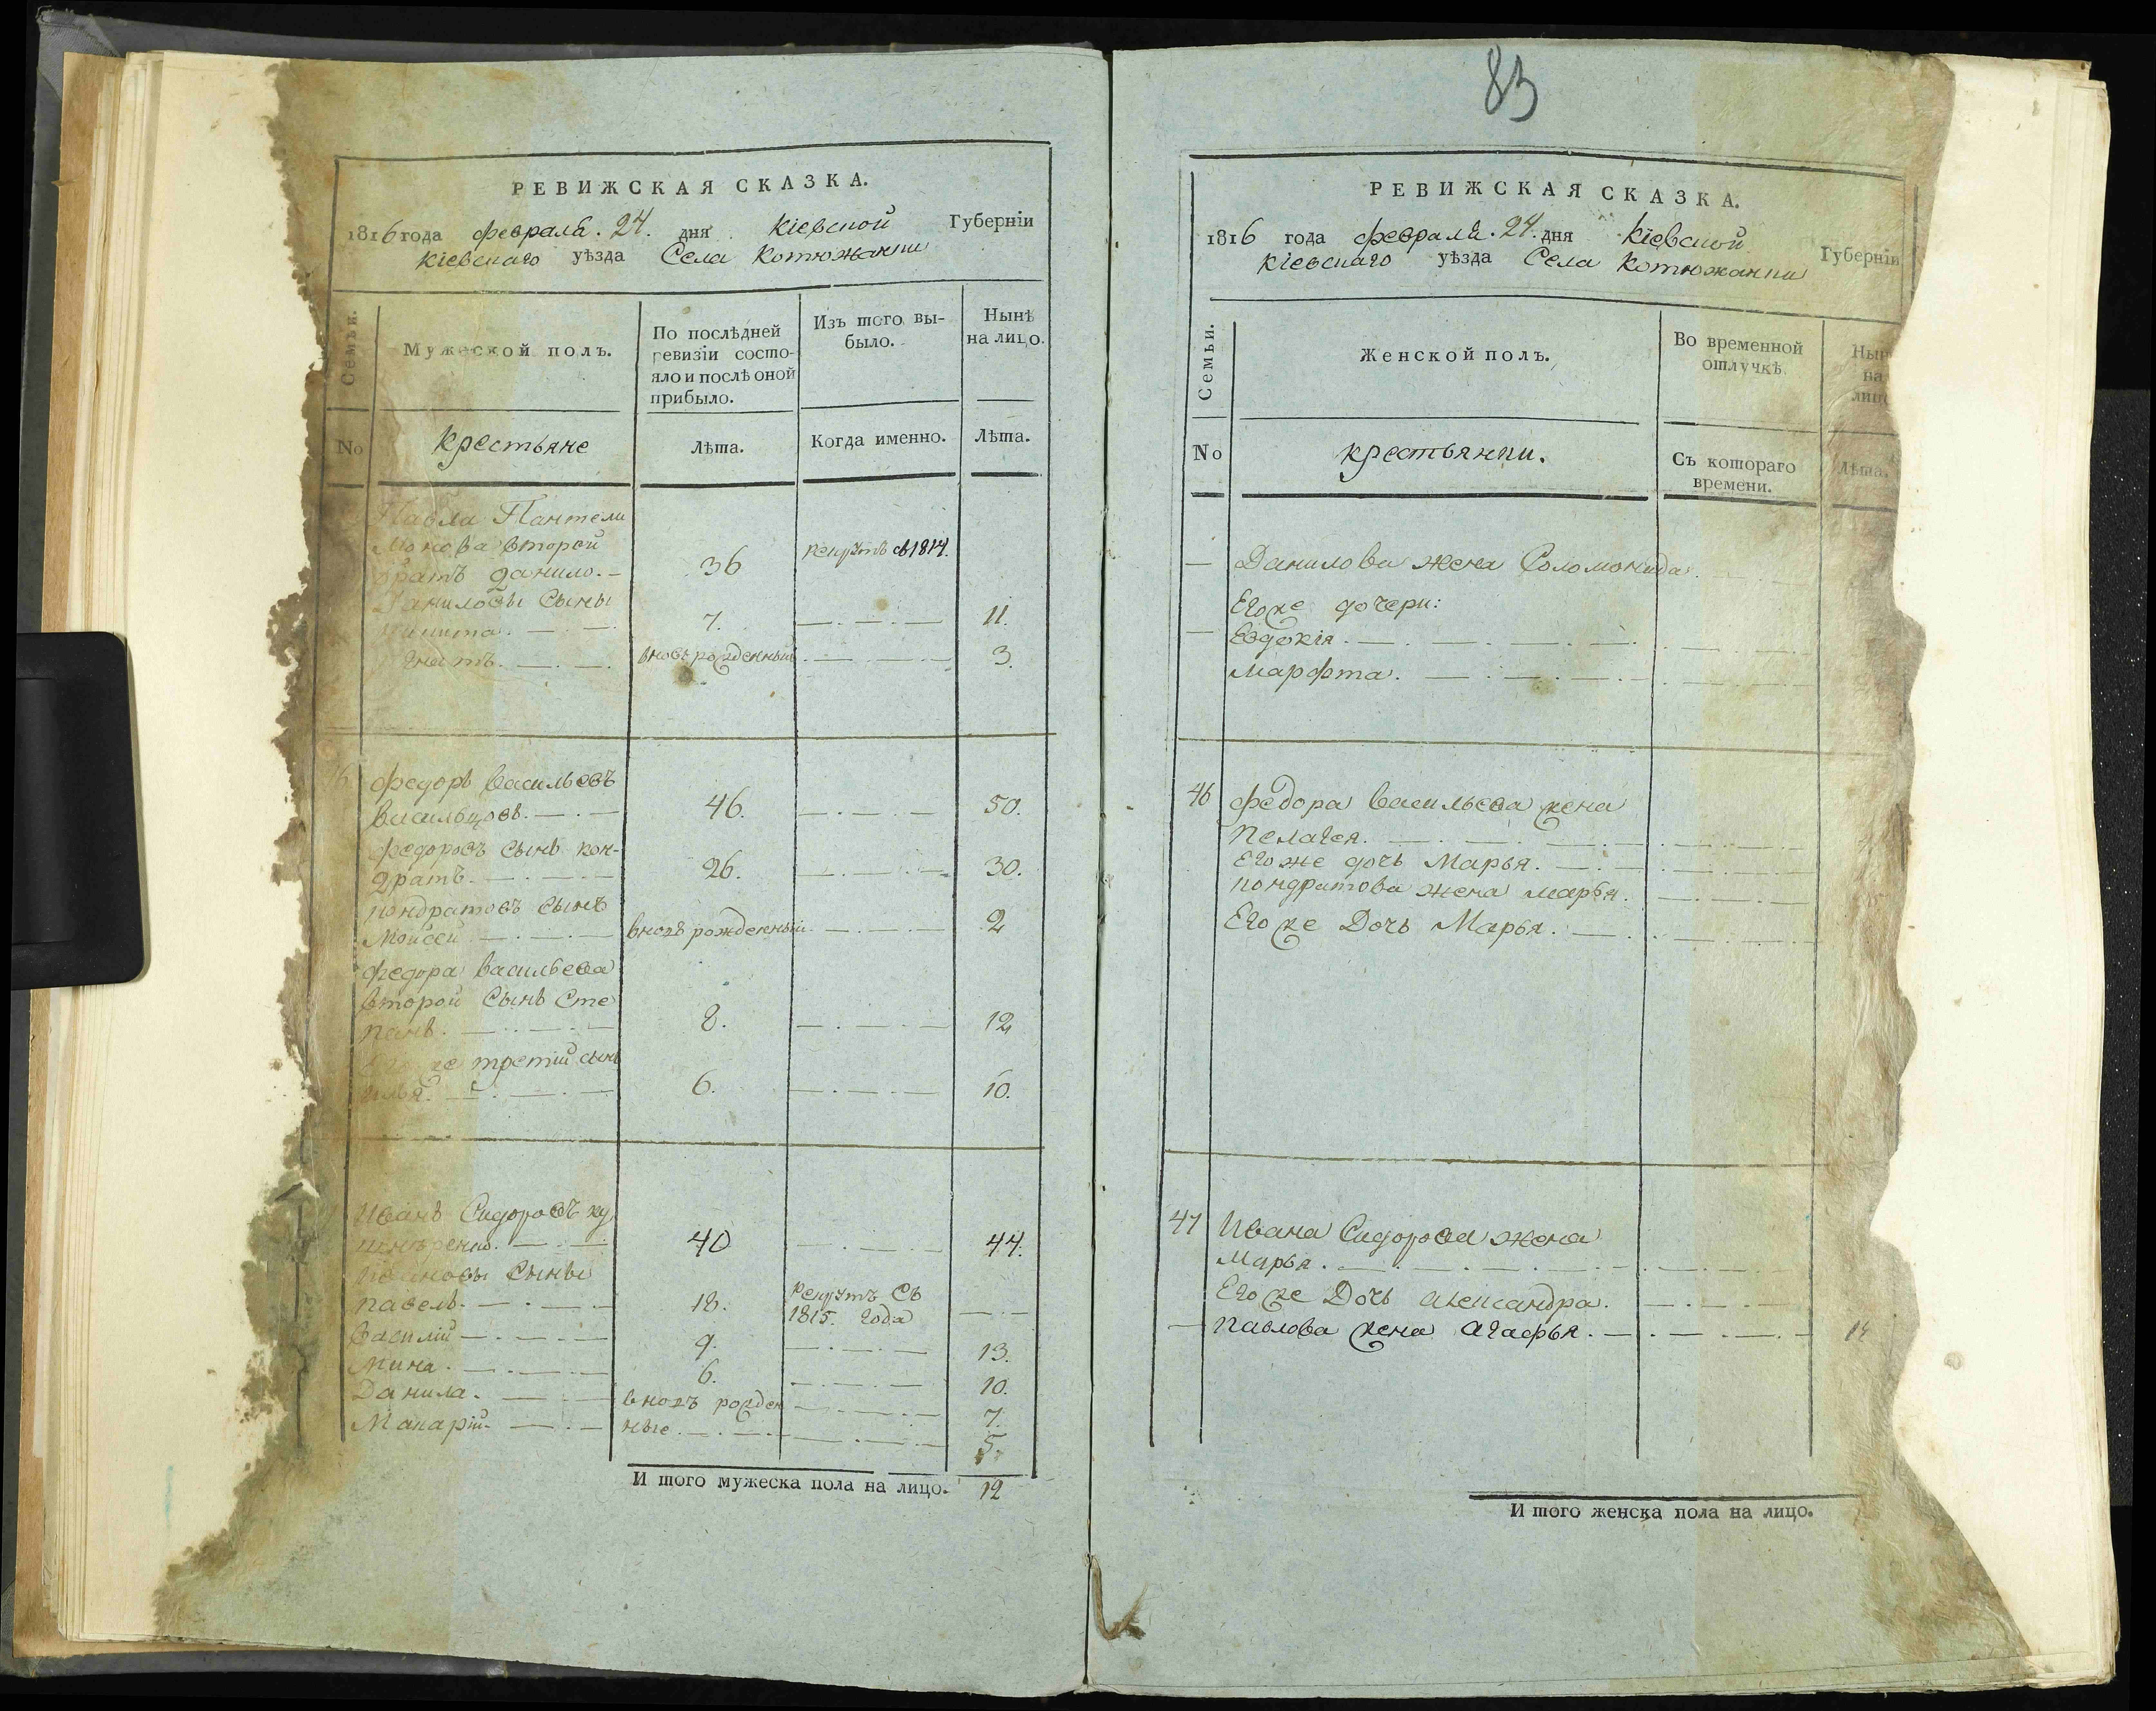 83
РЕВИЖСКАЯ СКАЗКА.
1816 года февраля. 24. дня Кіевской Губерніи
Кіевскаго уѣзда Села Котюжанки
Семьи.
Мужеской полъ.
По послѣдней
ревизіи состо-
яло и послѣ оной
прибыло.
Изъ того вы-
было.
Нынѣ
на лицо.
No
крестьяне
Лѣта.
Когда именно.
Лѣта.
Павла Пантели
монова второй
братъ Данило. 36 рекрутъ съ 1814.
Даниловы Сыны
Никита. 7. 11.
Гнатъ. вновь рожденный 3.
46 Федоръ Васильевъ
Васильцовъ. 46. 50.
Федоровъ сынъ Кон-
дратъ. 26. 30.
Кондратовъ сынъ
Мойсей вновь рожденный 2
Федора Васильева
второй Сынъ Сте
панъ. 8. 12
Его же третій сынъ
Илья. 6. 10.
Иванъ Сидоровъ
40 44.
Ивановы Сыны
Павелъ. 18. рекрутъ съ
1815. года
Василій 9. 13.
Мина. 6. 10.
Данила. вновь рожден 7.
Макарій. ные. 5.
И того мужеска пола на лицо. 12
РЕВИЖСКАЯ СКАЗКА.
1816 года февраля. 24. дня Кіевской Губерніи
Кіевскаго уѣзда Села Котюжанки
Семьи.
Женской полъ.
Во временной
отлучкѣ
Нын
на
лиц
No
крестьянки.
Съ котораго
времени.
Лѣта.
Данилова жена Соломонида.
Его же дочери:
Евдокія.
Марфта.
46 Федора Васильева жена
Пелагея.
Его же дочь Марья.
Кондратова жена Марья.
Его же Дочь Марья.
47 Ивана Сидорова жена
Марья.
Его же Дочь Александра.
Павлова жена Агафья.
И того женска пола на лицо.